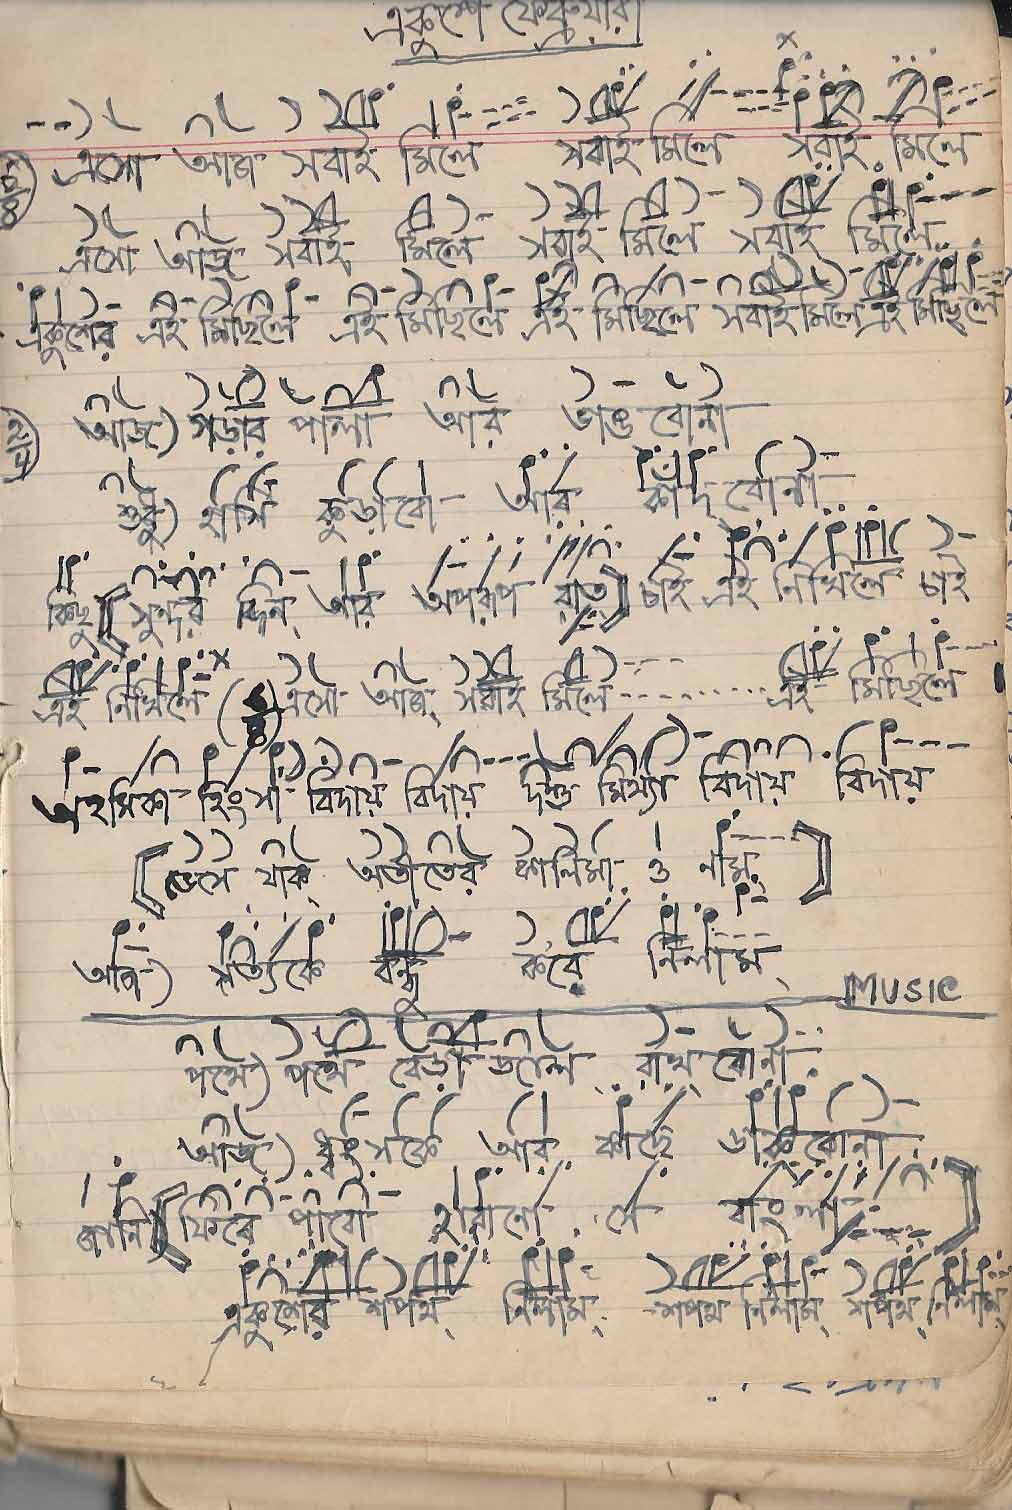 একুশে ফেব্রুয়ারী
৬/৮ এসো আজ সবাই মিলে সবাই মিলে সবাই মিলে
এসো আজ সবাই মিলে সবাই মিলে সবাই মিলে
একুশের এই মিছিলে এই মিছিলে এই মিছিলে সবাই মিলে এই মিছিলে
২/৪ আজ) গড়ার পালা আর ভাঙবোনা
শুধু) হাসি কুড়াবো আর কাঁদবোনা
কিছু [সুন্দর দিন আর অপরূপ রাত] চাই এই নিখিলে চাই
এই নিখিলে (৬/৮) এসো আজ সবাই মিলে ........... এই মিছিলে
অহমিকা হিংসা বিদায় বিদায় দম্ভ মিথ্যা বিদায় বিদায়
[ভেসে যাক্ অতীতের কালিমা ও নাম]
আজ) সত্যকে বন্ধু করে নিলাম
MUSIC
পথে) পথে বেড়া জাল রাখবোনা
আজ) ধ্বংসকে আর কাছে ডাকবোনা
জানি [ফিরে পাবো হারানো সে বাংলা]
একুশের শপথ নিলাম শপথ নিলাম শপথ নিলাম